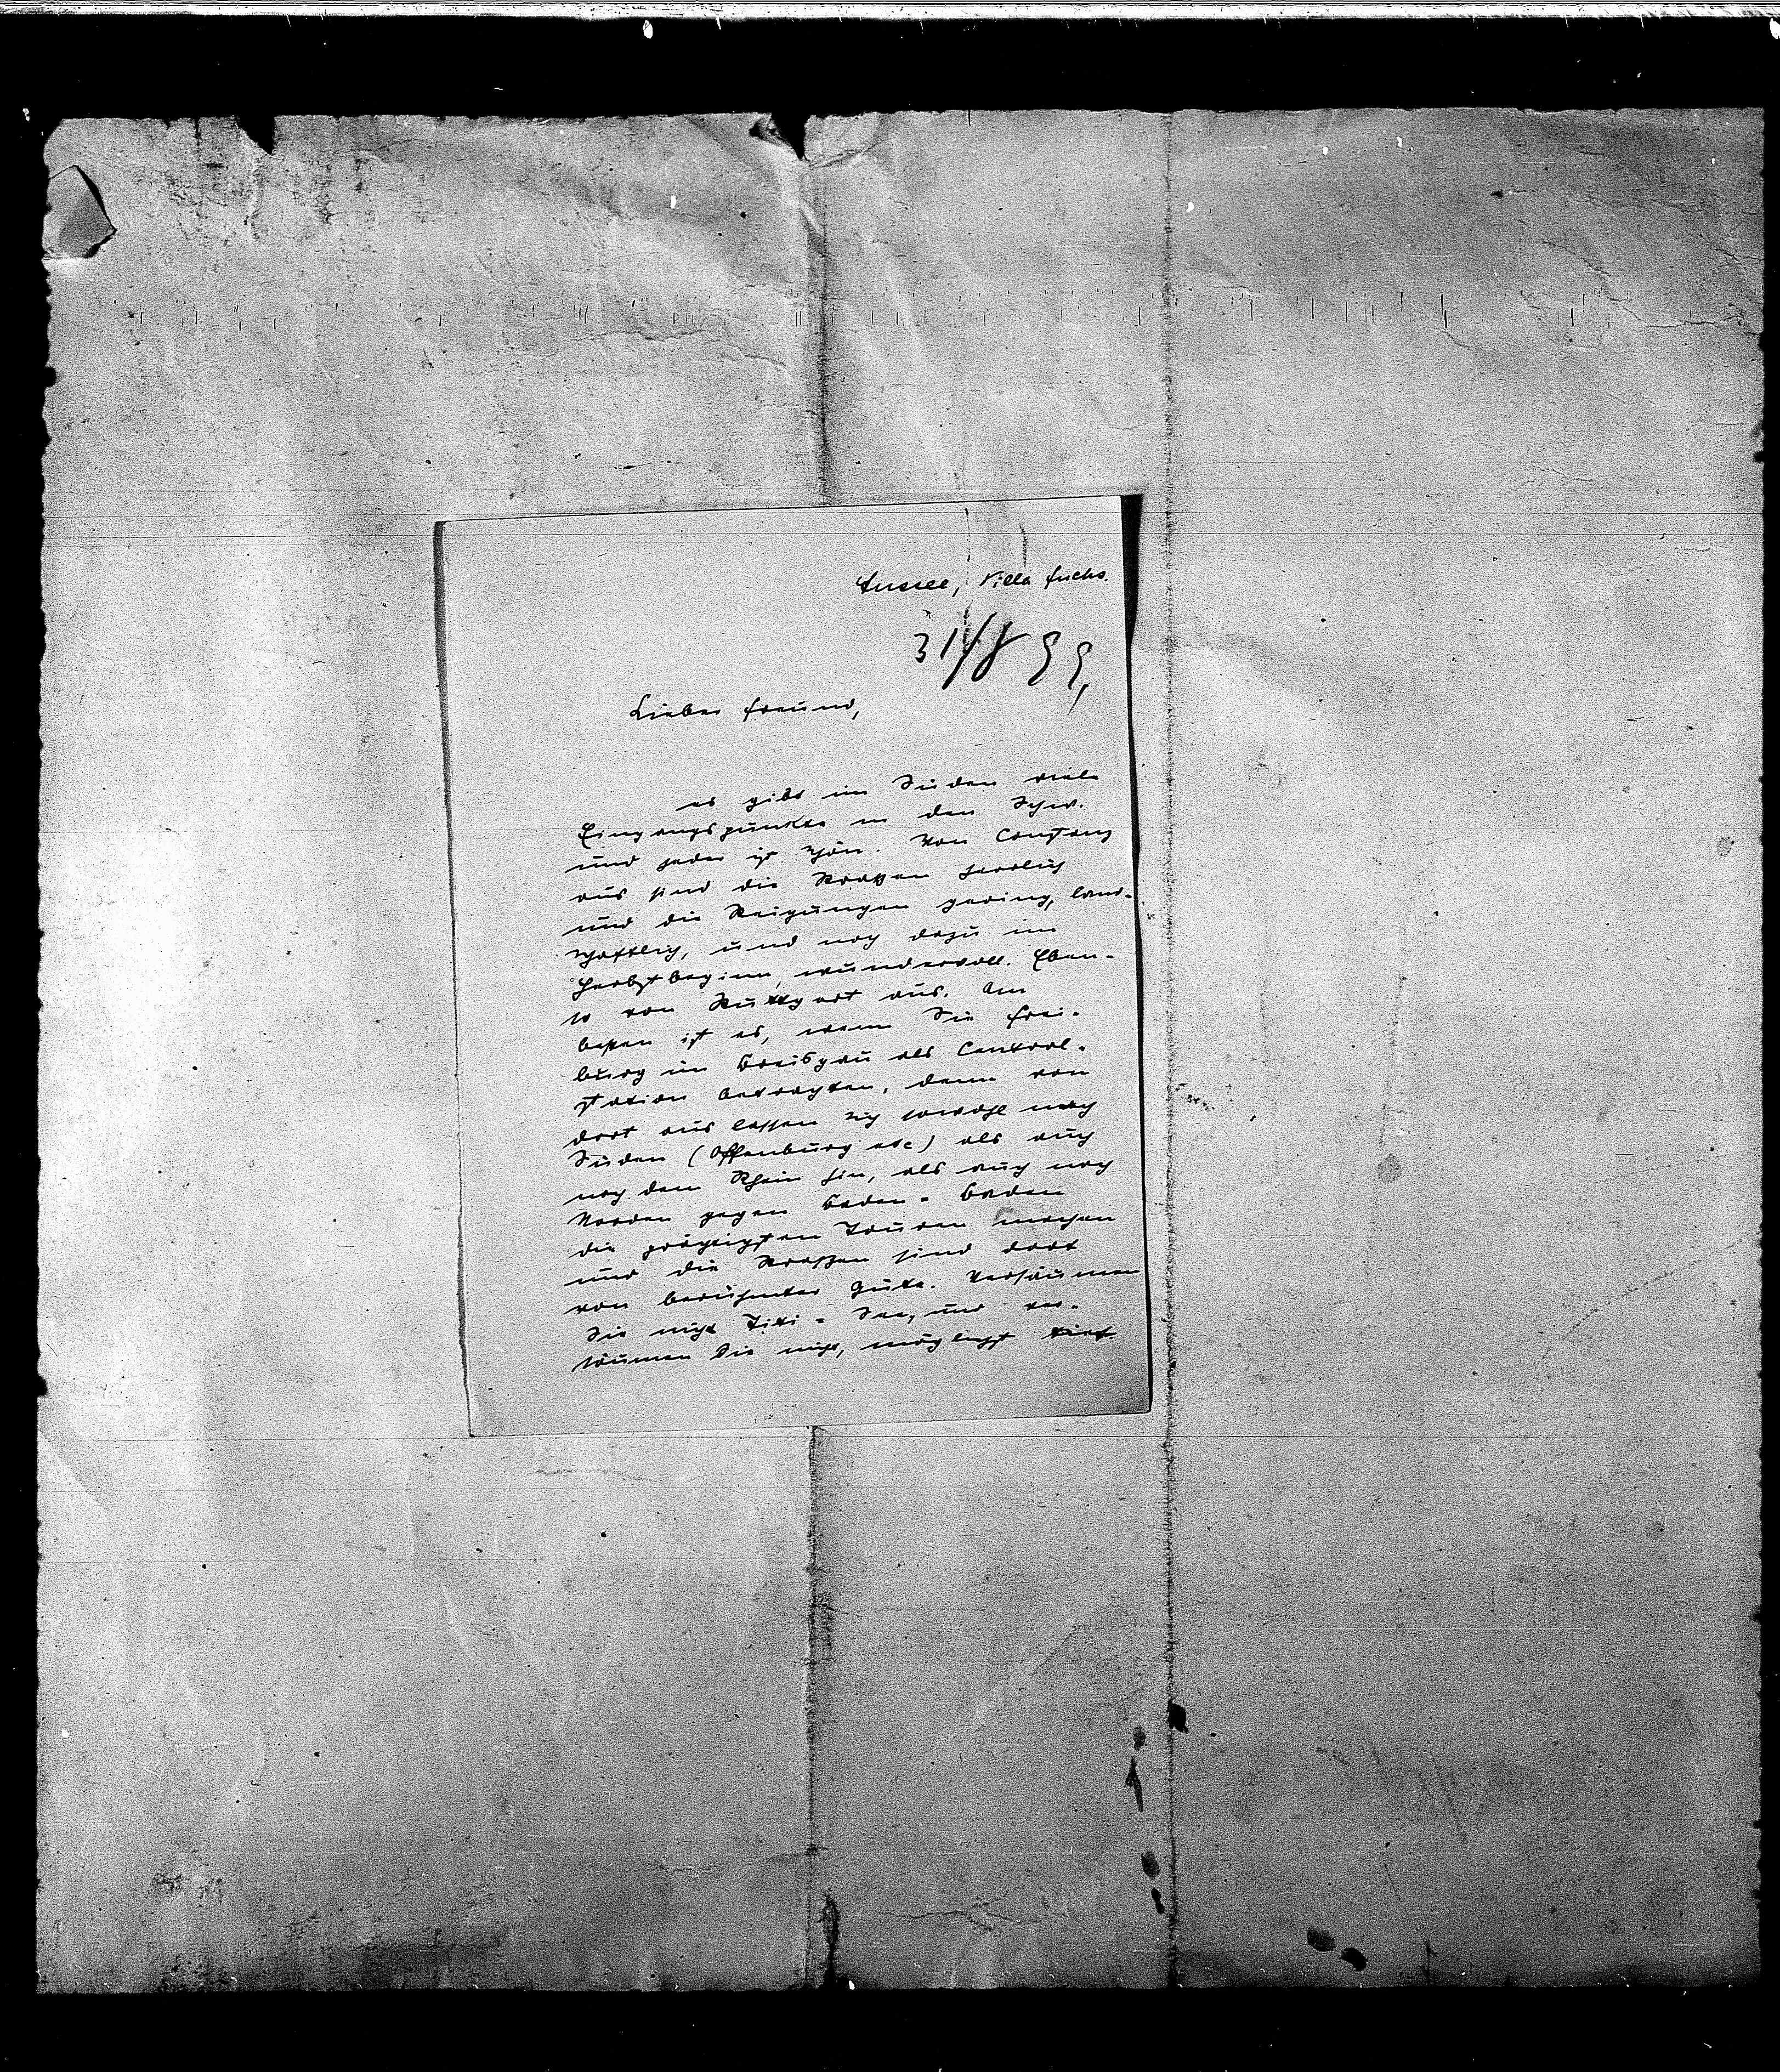 Aussee, Villa Fuchs.
31/8 99,
Lieber Freund,
es gibt im Süden viele
Eingangspunkte in den Schw.
und jeder ist schön. Von Constanz
aus sind die Straßen herrlich
und die Steigungen gering, land-
schaftlich, und noch dazu im
Herbstbeginn, wundervoll. Eben-
so von Stuttgart aus. Am
besten ist es, wenn Sie Frei-
burg im Breisgau als Central-
station betrachten, denn von
dort aus lassen sich sowohl nach
Süden (Offenburg etc) als auch
nach dem Rhein hin, als auch nach
Norden gegen Baden-Baden
die prächtigsten Touren machen
und die Straßen sind dort
von berühmter Güte. Versäumen
Sie nicht Titi-See, und ver-
säumen Sie nicht, möglichst